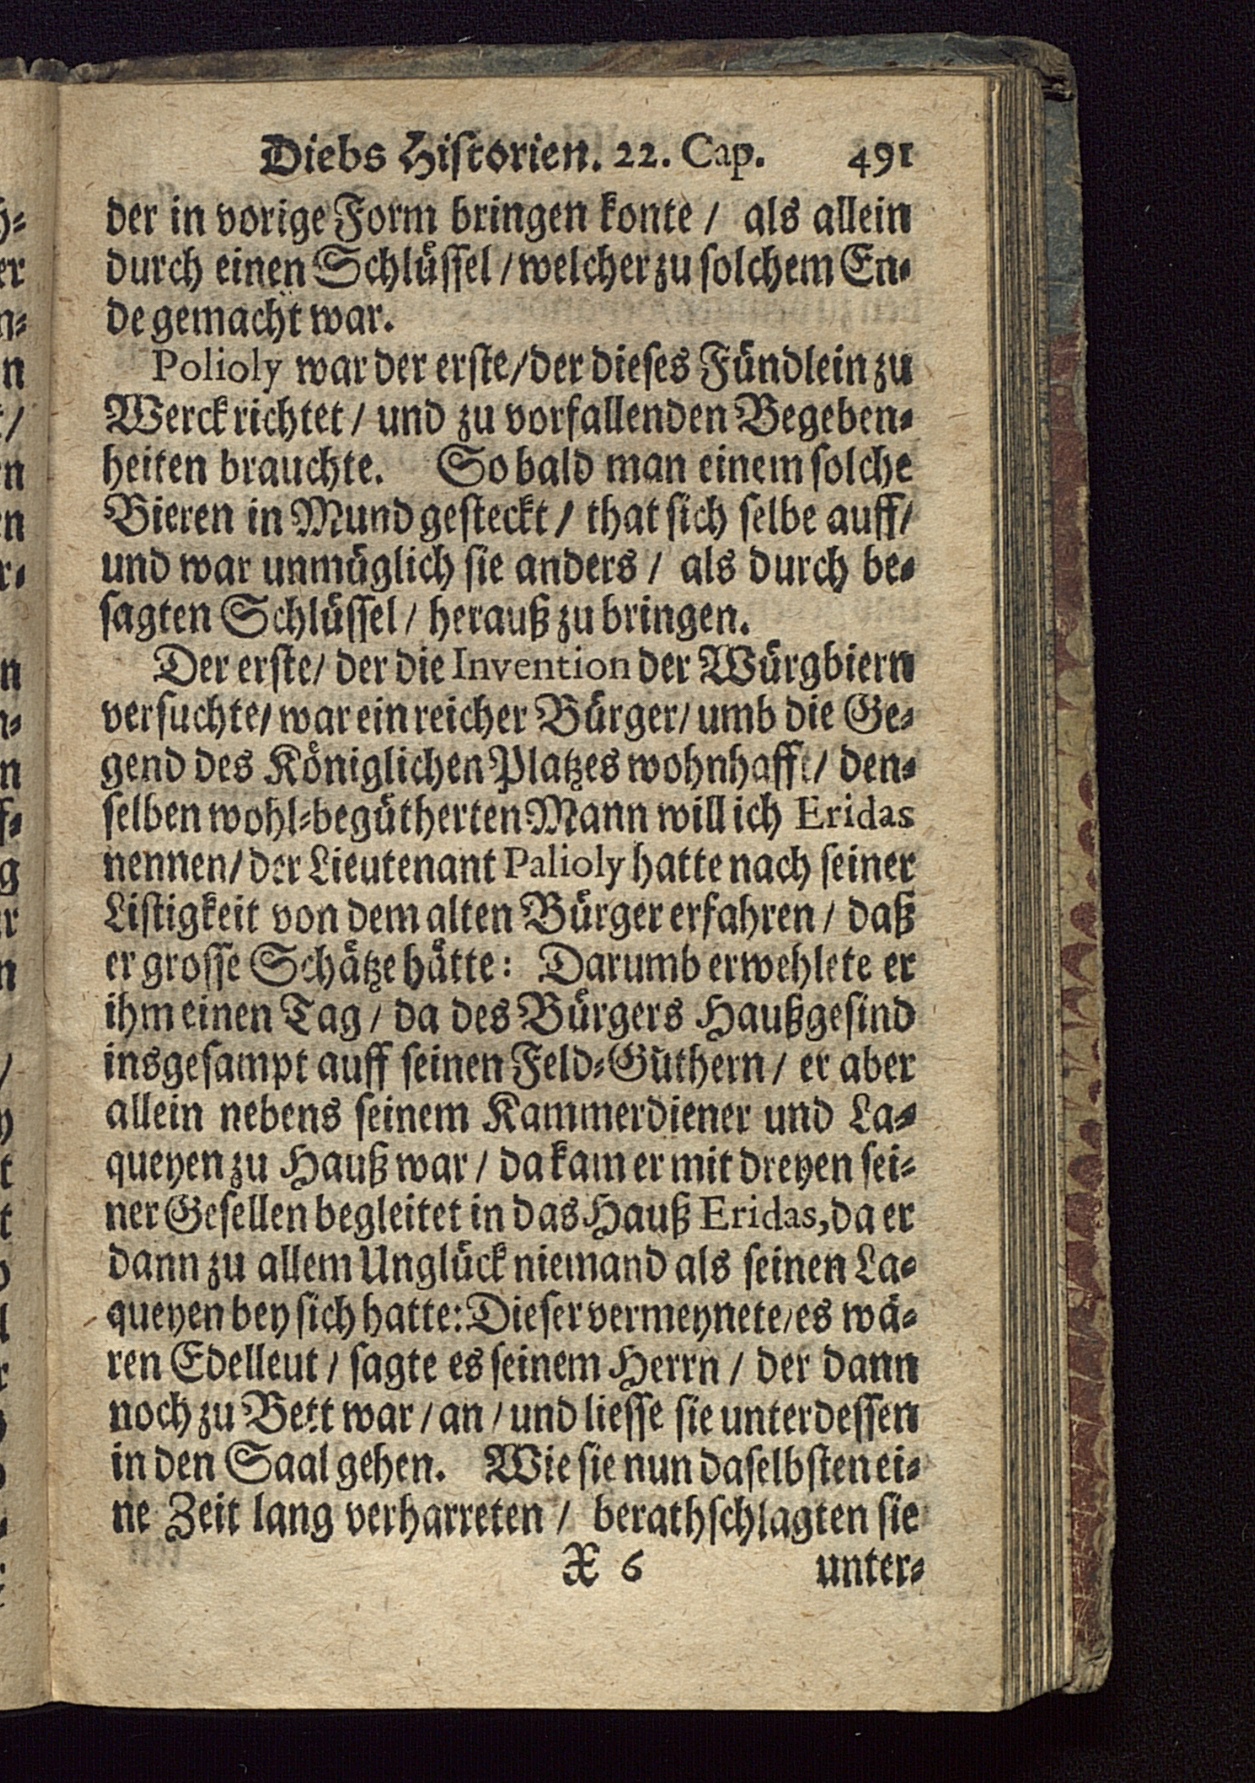 Diebs Historien. 22. Cap. 491
der in vorige Form bringen konte / als allein
durch einen Schlüssel / welcher zu solchem En-
de gemacht war.
Polioly war der erste / der dieses Fündlein zu
Werck richtet / und zu vorfallenden Begeben-
heiten brauchte. So bald man einem solche
Bieren in Mund gesteckt / that sich selbe auff /
und war unmüglich sie anders / als durch be-
sagten Schlüssel / herauß zu bringen.
Der erste / der die Invention der Würgbiern
versuchte / war ein reicher Bürger / umb die Ge-
gend des Königlichen Platzes wohnhafft / den-
selben wohl-begütherten Mann will ich Eridas
nennen / der Lieutenant Palioly hatte nach seiner
Listigkeit von dem alten Bürger erfahren / daß
er grosse Schätze hätte: Darumb erwehlete er
ihm einen Tag / da des Bürgers Haußgesind
insgesampt auff seinen Feld-Güthern / er aber
allein nebens seinem Kammerdiener und La-
queyen zu Hauß war / da kam er mit dreyen sei-
ner Gesellen begleitet in das Hauß Eridas, da er
dann zu allem Unglück niemand als seinen La-
queyen bey sich hatte: Dieser vermeynete / es wä-
ren Edelleut / sagte es seinem Herrn / der dann
noch zu Bett war / an / und liesse sie unterdessen
in den Saal gehen. Wie sie nun daselbsten ei-
ne Zeit lang verharreten / berathschlagten sie
X 6 unter-